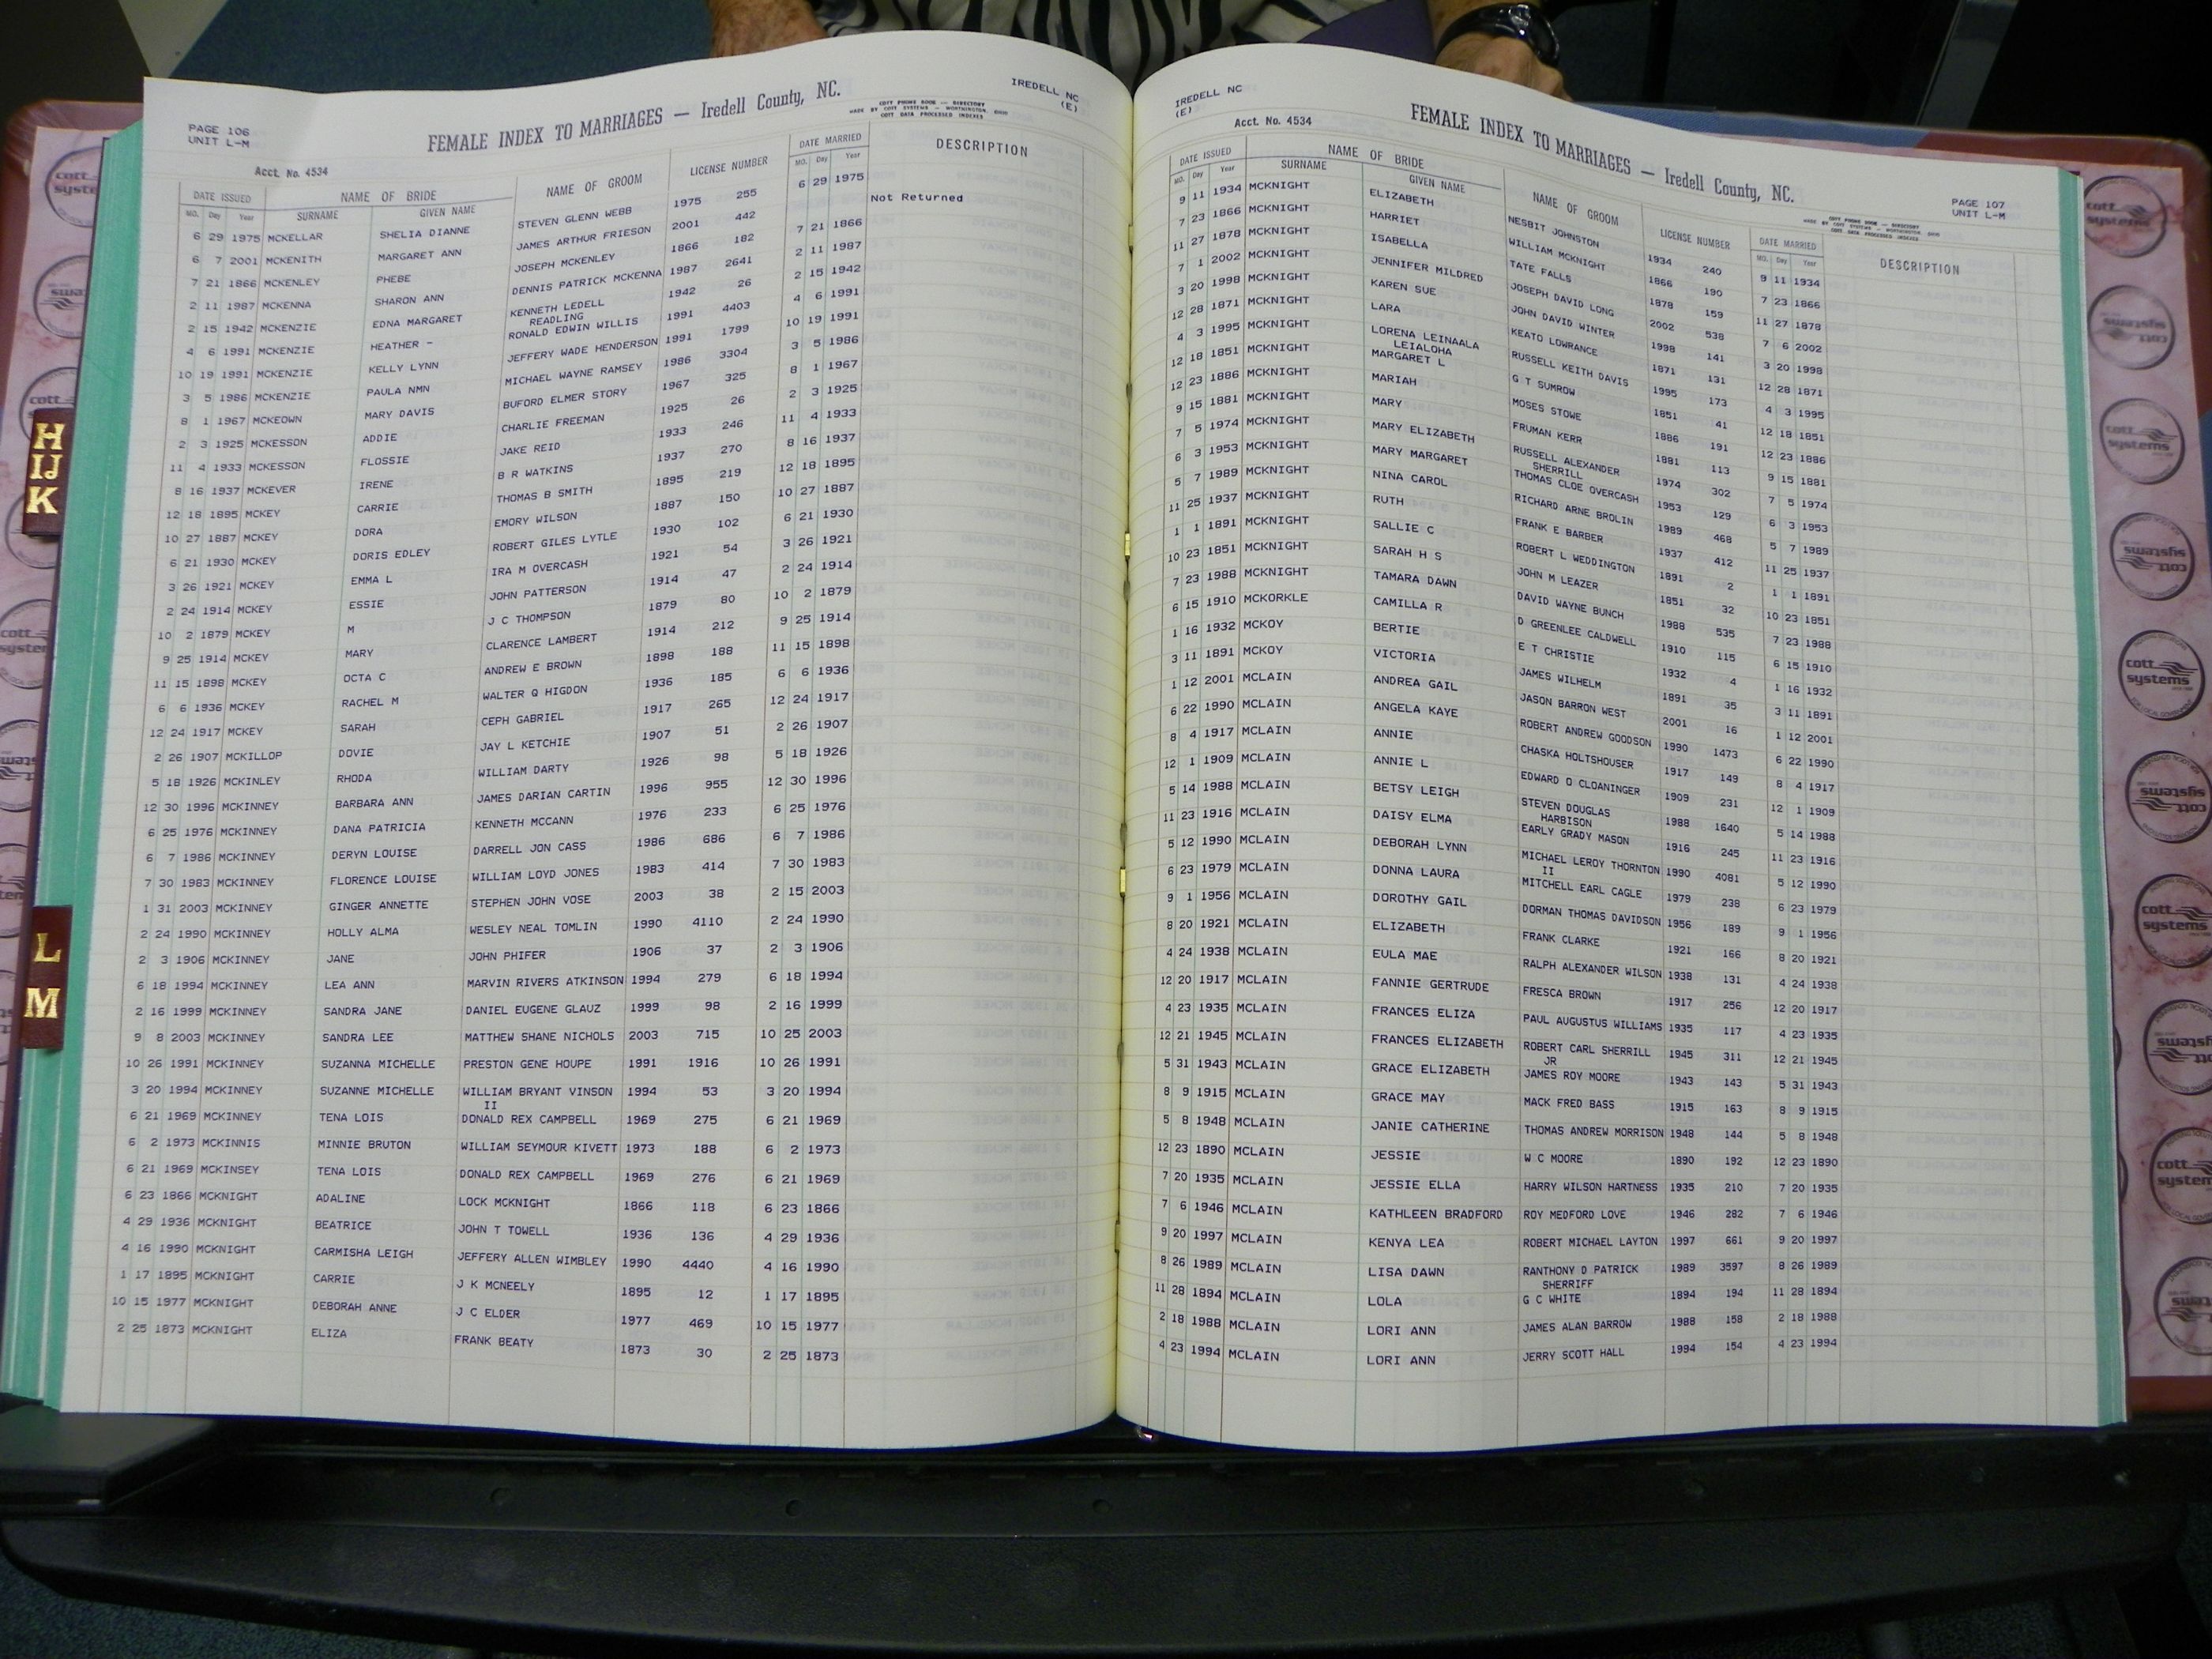 PAGE 106
UNIT L-M
FEMALE INDEX TO MARRIAGES — Iredell County, NC.
MADE BY COTT SYSTEMS — WORTHINGTON OHIO
COTT PHONE BOOK — DIRECTORY
COTT DATA PROCESSED INDEXES
IREDELL NC
(E)
Acct. No. 4534
DATE ISSUED NAME OF BRIDE NAME OF GROOM LICENSE NUMBER DATE MARRIED DESCRIPTION
MO. Day Year SURNAME GIVEN NAME MO. Day Year
6 29 1975 MCKELLAR SHELIA DIANNE STEVEN GLENN WEBB 1975 255 6 29 1975
6 7 2001 MCKENITH MARGARET ANN JAMES ARTHUR FRIESON 2001 442 Not Returned
7 21 1866 MCKENLEY PHEBE JOSEPH MCKENLEY 1866 182 7 21 1866
2 11 1987 MCKENNA SHARON ANN DENNIS PATRICK MCKENNA 1987 2641 2 11 1987
2 15 1942 MCKENZIE EDNA MARGARET KENNETH LEDELL READLING 1942 26 2 15 1942
4 6 1991 MCKENZIE HEATHER - RONALD EDWIN WILLIS 1991 4403 4 6 1991
10 19 1991 MCKENZIE KELLY LYNN JEFFERY WADE HENDERSON 1991 1799 10 19 1991
3 5 1986 MCKENZIE PAULA NMN MICHAEL WAYNE RAMSEY 1986 3304 3 5 1986
8 1 1967 MCKEOWN MARY DAVIS BUFORD ELMER STORY 1967 325 8 1 1967
2 3 1925 MCKESSON ADDIE CHARLIE FREEMAN 1925 26 2 3 1925
11 4 1933 MCKESSON FLOSSIE JAKE REID 1933 246 11 4 1933
8 16 1937 MCKEVER IRENE B R WATKINS 1937 270 8 16 1937
12 18 1895 MCKEY CARRIE THOMAS B SMITH 1895 219 12 18 1895
10 27 1887 MCKEY DORA EMORY WILSON 1887 150 10 27 1887
6 21 1930 MCKEY DORIS EDLEY ROBERT GILES LYTLE 1930 102 6 21 1930
3 26 1921 MCKEY EMMA L IRA M OVERCASH 1921 54 3 26 1921
2 24 1914 MCKEY ESSIE JOHN PATTERSON 1914 47 2 24 1914
10 2 1879 MCKEY M J C THOMPSON 1879 80 10 2 1879
9 25 1914 MCKEY MARY CLARENCE LAMBERT 1914 212 9 25 1914
11 15 1898 MCKEY OCTA C ANDREW E BROWN 1898 188 11 15 1898
6 6 1936 MCKEY RACHEL M WALTER Q HIGDON 1936 185 6 6 1936
12 24 1917 MCKEY SARAH CEPH GABRIEL 1917 265 12 24 1917
2 26 1907 MCKILLOP DOVIE JAY L KETCHIE 1907 51 2 26 1907
5 18 1926 MCKINLEY RHODA WILLIAM DARTY 1926 98 5 18 1926
12 30 1996 MCKINNEY BARBARA ANN JAMES DARIAN CARTIN 1996 955 12 30 1996
6 25 1976 MCKINNEY DANA PATRICIA KENNETH MCCANN 1976 233 6 25 1976
6 7 1986 MCKINNEY DERYN LOUISE DARRELL JON CASS 1986 686 6 7 1986
7 30 1983 MCKINNEY FLORENCE LOUISE WILLIAM LOYD JONES 1983 414 7 30 1983
1 31 2003 MCKINNEY GINGER ANNETTE STEPHEN JOHN VOSE 2003 38 2 15 2003
2 24 1990 MCKINNEY HOLLY ALMA WESLEY NEAL TOMLIN 1990 4110 2 24 1990
2 3 1906 MCKINNEY JANE JOHN PHIFER 1906 37 2 3 1906
6 18 1994 MCKINNEY LEA ANN MARVIN RIVERS ATKINSON 1994 279 6 18 1994
2 16 1999 MCKINNEY SANDRA JANE DANIEL EUGENE GLAUZ 1999 98 2 16 1999
9 8 2003 MCKINNEY SANDRA LEE MATTHEW SHANE NICHOLS 2003 715 10 25 2003
10 26 1991 MCKINNEY SUZANNA MICHELLE PRESTON GENE HOUPE 1991 1916 10 26 1991
3 20 1994 MCKINNEY SUZANNE MICHELLE WILLIAM BRYANT VINSON II 1994 53 3 20 1994
6 21 1969 MCKINNEY TENA LOIS DONALD REX CAMPBELL 1969 275 6 21 1969
6 2 1973 MCKINNIS MINNIE BRUTON WILLIAM SEYMOUR KIVETT 1973 188 6 2 1973
6 21 1969 MCKINSEY TENA LOIS DONALD REX CAMPBELL 1969 276 6 21 1969
6 23 1866 MCKNIGHT ADALINE LOCK MCKNIGHT 1866 118 6 23 1866
4 29 1936 MCKNIGHT BEATRICE JOHN T TOWELL 1936 136 4 29 1936
4 16 1990 MCKNIGHT CARMISHA LEIGH JEFFERY ALLEN WIMBLEY 1990 4440 4 16 1990
1 17 1895 MCKNIGHT CARRIE J K MCNEELY 1895 12 1 17 1895
10 15 1977 MCKNIGHT DEBORAH ANNE J C ELDER 1977 469 10 15 1977
2 25 1873 MCKNIGHT ELIZA FRANK BEATY 1873 30 2 25 1873
IREDELL NC
(E)
Acct. No. 4534
FEMALE INDEX TO MARRIAGES — Iredell County, NC.
PAGE 107
UNIT L-M
MADE BY COTT SYSTEMS — WORTHINGTON OHIO
COTT PHONE BOOK — DIRECTORY
COTT DATA PROCESSED INDEXES
DATE ISSUED NAME OF BRIDE NAME OF GROOM LICENSE NUMBER DATE MARRIED DESCRIPTION
MO. Day Year SURNAME GIVEN NAME MO. Day Year
9 11 1934 MCKNIGHT ELIZABETH NESBIT JOHNSTON 1934 240 9 11 1934
7 23 1866 MCKNIGHT HARRIET WILLIAM MCKNIGHT 1866 190 7 23 1866
11 27 1878 MCKNIGHT ISABELLA TATE FALLS 1878 159 11 27 1878
7 1 2002 MCKNIGHT JENNIFER MILDRED JOSEPH DAVID LONG 2002 538 7 6 2002
3 20 1998 MCKNIGHT KAREN SUE JOHN DAVID WINTER 1998 141 3 20 1998
12 28 1871 MCKNIGHT LARA KEATO LOWRANCE 1871 131 12 28 1871
4 3 1995 MCKNIGHT LORENA LEINAALA LEIALOHA RUSSELL KEITH DAVIS 1995 173 4 3 1995
12 18 1851 MCKNIGHT MARGARET L G T SUMROW 1851 41 12 18 1851
12 23 1886 MCKNIGHT MARIAH MOSES STOWE 1886 191 12 23 1886
9 15 1881 MCKNIGHT MARY FRUMAN KERR 1881 113 9 15 1881
7 5 1974 MCKNIGHT MARY ELIZABETH RUSSELL ALEXANDER SHERRILL 1974 302 7 5 1974
6 3 1953 MCKNIGHT MARY MARGARET THOMAS CLOE OVERCASH 1953 129 6 3 1953
5 7 1989 MCKNIGHT NINA CAROL RICHARD ARNE BROLIN 1989 468 5 7 1989
11 25 1937 MCKNIGHT RUTH FRANK E BARBER 1937 412 11 25 1937
1 1 1891 MCKNIGHT SALLIE C ROBERT L WEDDINGTON 1891 2 1 1 1891
10 23 1851 MCKNIGHT SARAH H S JOHN M LEAZER 1851 32 10 23 1851
7 23 1988 MCKNIGHT TAMARA DAWN DAVID WAYNE BUNCH 1988 535 7 23 1988
6 15 1910 MCKORKLE CAMILLA R D GREENLEE CALDWELL 1910 115 6 15 1910
1 16 1932 MCKOY BERTIE E T CHRISTIE 1932 4 1 16 1932
3 11 1891 MCKOY VICTORIA JAMES WILHELM 1891 35 3 11 1891
1 12 2001 MCLAIN ANDREA GAIL JASON BARRON WEST 2001 16 1 12 2001
6 22 1990 MCLAIN ANGELA KAYE ROBERT ANDREW GOODSON 1990 1473 6 22 1990
8 4 1917 MCLAIN ANNIE CHASKA HOLTSHOUSER 1917 149 8 4 1917
12 1 1909 MCLAIN ANNIE L EDWARD O CLOANINGER 1909 231 12 1 1909
5 14 1988 MCLAIN BETSY LEIGH STEVEN DOUGLAS HARBISON 1988 1640 5 14 1988
11 23 1916 MCLAIN DAISY ELMA EARLY GRADY MASON 1916 245 11 23 1916
5 12 1990 MCLAIN DEBORAH LYNN MICHAEL LEROY THORNTON II 1990 4081 5 12 1990
6 23 1979 MCLAIN DONNA LAURA MITCHELL EARL CAGLE 1979 238 6 23 1979
9 1 1956 MCLAIN DOROTHY GAIL DORMAN THOMAS DAVIDSON 1956 189 9 1 1956
8 20 1921 MCLAIN ELIZABETH FRANK CLARKE 1921 166 8 20 1921
4 24 1938 MCLAIN EULA MAE RALPH ALEXANDER WILSON 1938 131 4 24 1938
12 20 1917 MCLAIN FANNIE GERTRUDE FRESCA BROWN 1917 256 12 20 1917
4 23 1935 MCLAIN FRANCES ELIZA PAUL AUGUSTUS WILLIAMS 1935 117 4 23 1935
12 21 1945 MCLAIN FRANCES ELIZABETH ROBERT CARL SHERRILL JR 1945 311 12 21 1945
5 31 1943 MCLAIN GRACE ELIZABETH JAMES ROY MOORE 1943 143 5 31 1943
8 9 1915 MCLAIN GRACE MAY MACK FRED BASS 1915 163 8 9 1915
5 8 1948 MCLAIN JANIE CATHERINE THOMAS ANDREW MORRISON 1948 144 5 8 1948
12 23 1890 MCLAIN JESSIE W C MOORE 1890 192 12 23 1890
7 20 1935 MCLAIN JESSIE ELLA HARRY WILSON HARTNESS 1935 210 7 20 1935
7 6 1946 MCLAIN KATHLEEN BRADFORD ROY MEDFORD LOVE 1946 282 7 6 1946
9 20 1997 MCLAIN KENYA LEA ROBERT MICHAEL LAYTON 1997 661 9 20 1997
8 26 1989 MCLAIN LISA DAWN RANTHONY D PATRICK SHERRIFF 1989 3597 8 26 1989
11 28 1894 MCLAIN LOLA G C WHITE 1894 194 11 28 1894
2 18 1988 MCLAIN LORI ANN JAMES ALAN BARROW 1988 158 2 18 1988
4 23 1994 MCLAIN LORI ANN JERRY SCOTT HALL 1994 154 4 23 1994
H
IJ
K
L
M
cott systems